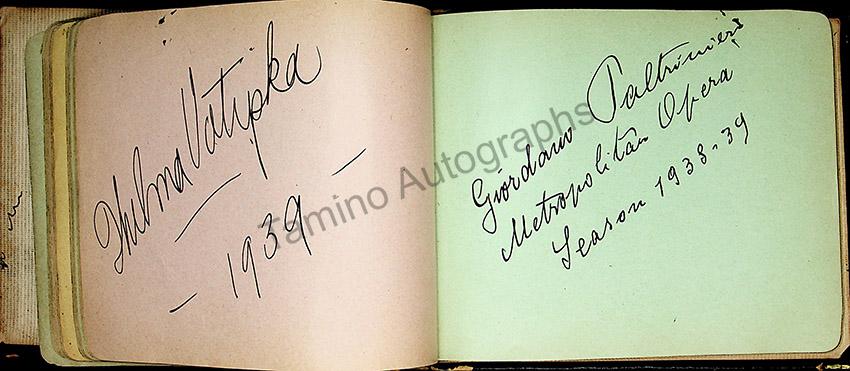 Thelma Votipka
- 1939 -
Giordano Paltrinieri
Metropolitan Opera
Season 1938-39
Tamino Autographs